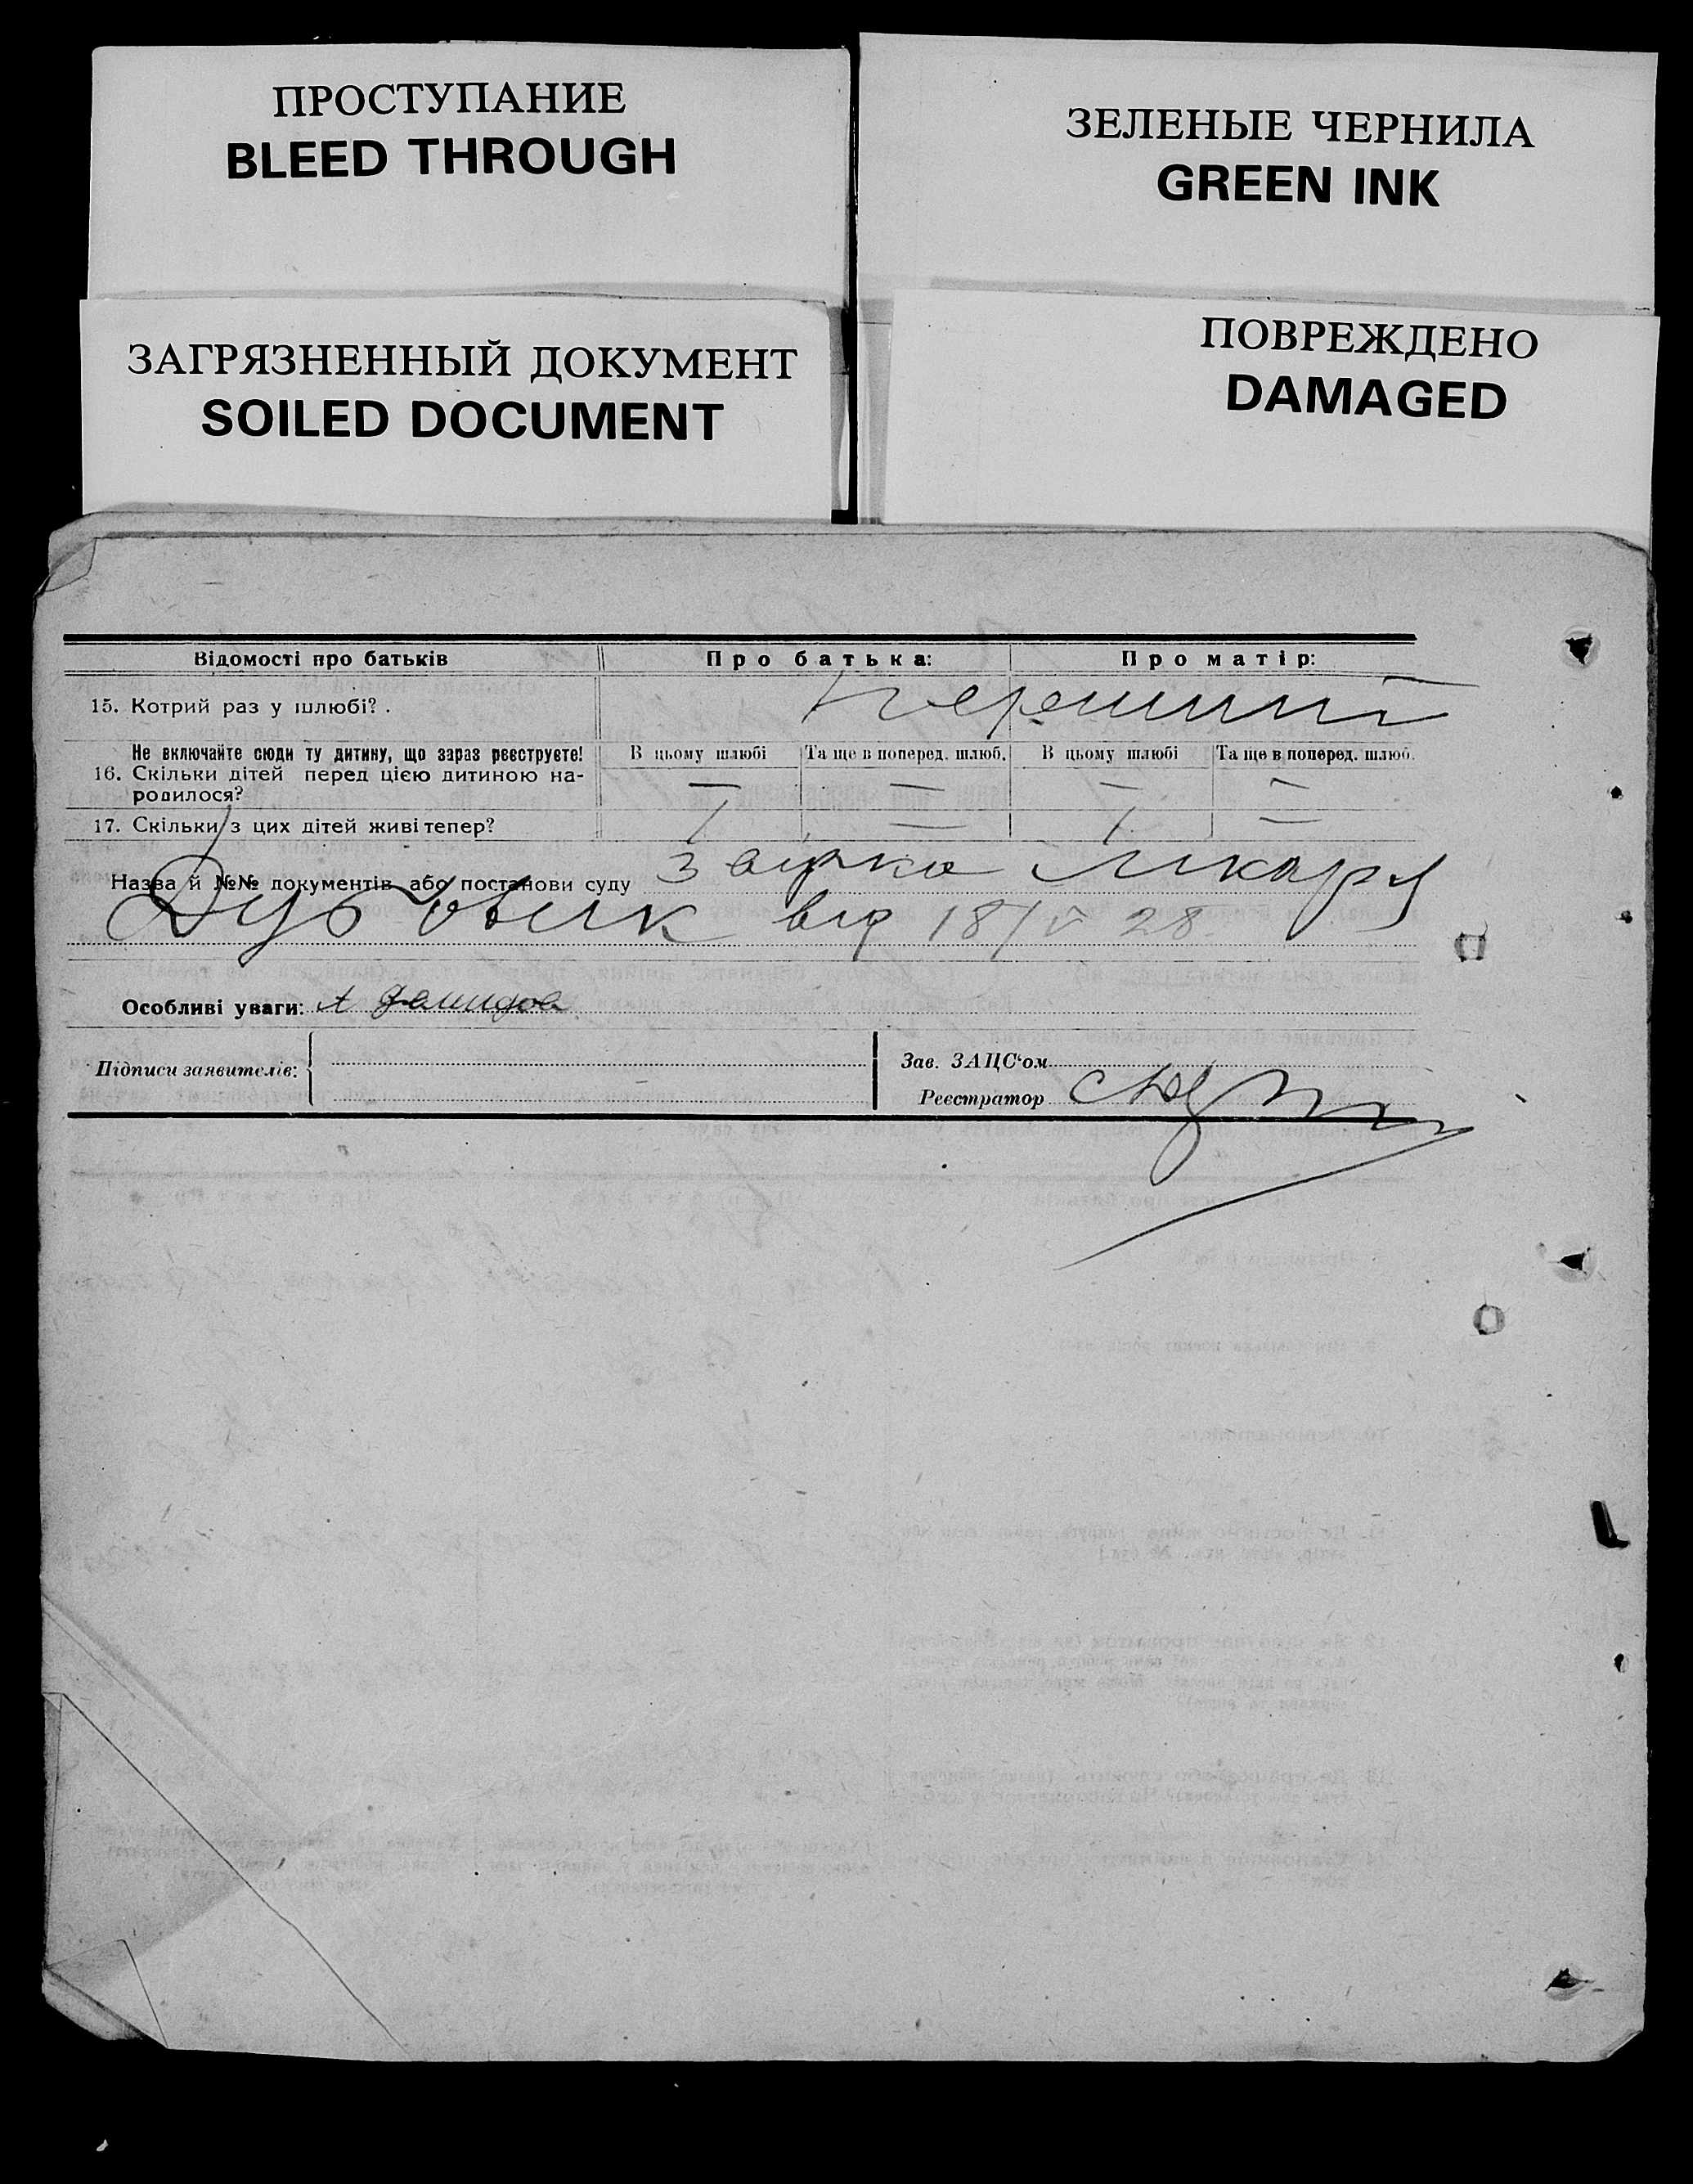 ПРОСТУПАНИЕ
BLEED THROUGH
ЗЕЛЕНЫЕ ЧЕРНИЛА
GREEN INK
ЗАГРЯЗНЕННЫЙ ДОКУМЕНТ
SOILED DOCUMENT
ПОВРЕЖДЕНО
DAMAGED
Відомості про батьків Про батька: Про матір:
15. Котрий раз у шлюбі? .
Не включайте сюди ту дитину, що зараз реєструєте! В цьому шлюбі Та ще в поперед. шлюб. В цьому шлюбі Та ще в поперед. шлюб.
16. Скільки дітей перед цією дитиною на-
родилося? — — — —
17. Скільки з цих дітей живі тепер?
Назва й №№ документів або постанови суду лікаря
від 18/V 28
Особливі уваги:
Підписи заявителів:
Зав. ЗАЦС'ом
Реєстратор